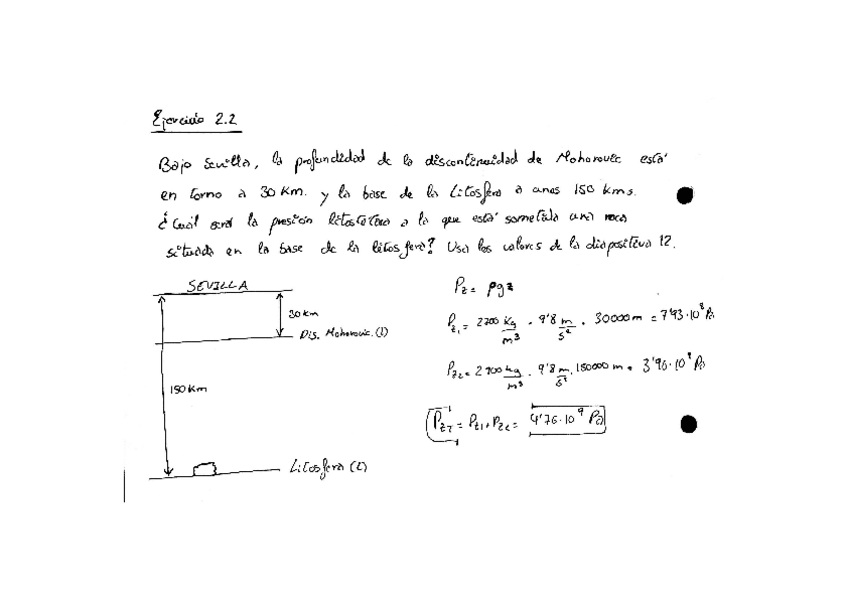 Ejercicio 2.2
Bajo Sevilla, la profundidad de la discontinuidad de Mohorovic está
en torno a 30 Km. y la base de la Litosfera a unos 150 kms.
¿Cuál será la presión litostática a la que está sometida una roca
situada en la base de la litosfera? Usa los valores de la diapositiva 12.
SEVILLA
30 km
Dis. Mohorovic. (1)
150 Km
Litosfera (2)
Pz = ρgz
Pz1 = 2700 kg/m³ · 9'8 m/s² · 30000 m = 7'93·10⁸ Pa
Pz2 = 2700 kg/m³ · 9'8 m/s² · 150000 m = 3'96·10⁹ Pa
PzT = Pz1 + Pz2 = 4'76·10⁹ Pa